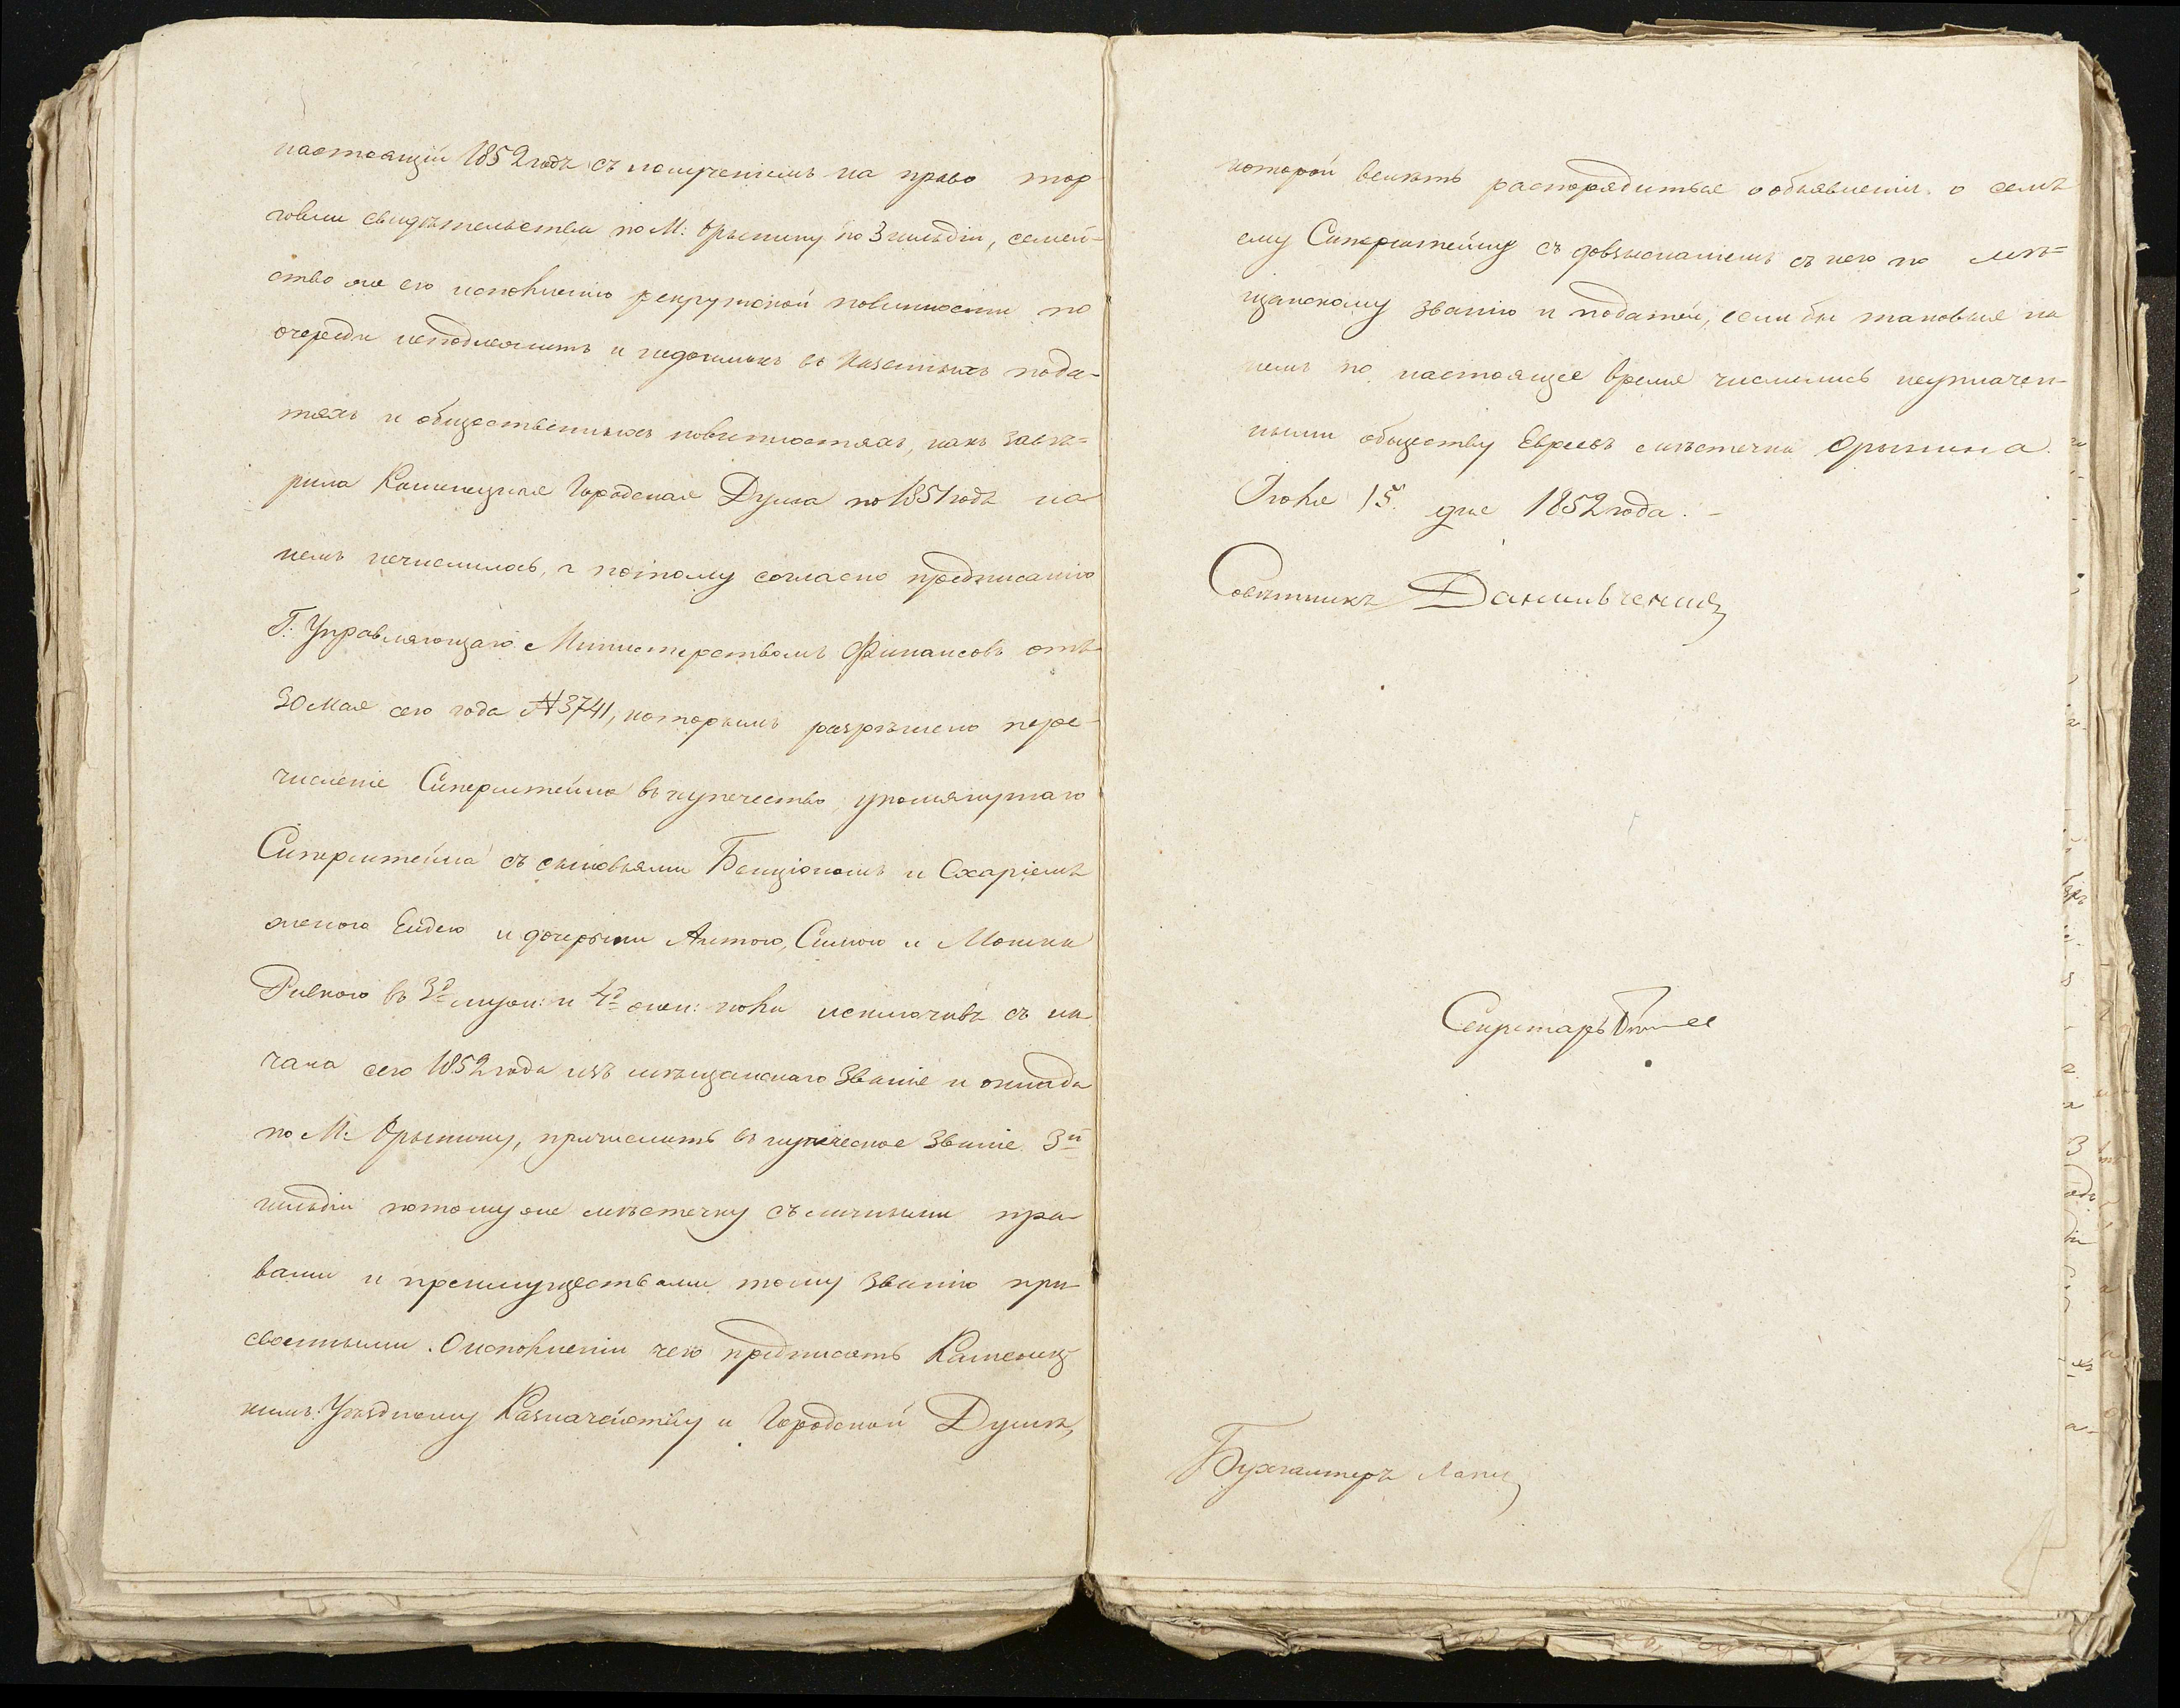 настоящій 1852 годъ съ полученіемъ на право тор
говли свидѣтельства по М: Орынину по 3 гильдіи, семей=
ство же его исполненію рекрутской повинности по
очереди неподлежитъ и недоимокъ въ казенныхъ пода-
тяхъ и общественныхъ повинностяхъ, какъ завѣ=
рила Каменецкая Городская Дума по 1851 годъ на
немъ нечислилось, а потому согласно предписанію
Г. Управляющаго Министерствомъ Финансовъ отъ
30 Мая сего года №3741, которымъ разрѣшено пере-
численіе Сиперштейна въ купечество, упомянутаго
Сиперштейна съ сыновьями Бенціономъ и Схаріемъ
женою Ейдею и дочерьми Антою, Симою и
Ривкою въ 3х муж: и 4х жен: пола исключивъ съ на
чала сего 1852 года изъ мѣщанскаго званія и оклада
по М: Орынину, причислить въ купеческое званіе 3й
гильдіи потому же мѣстечку съ личными пра-
вами и преимуществами тому званію при-
своенными. О исполненіи чего предписать Каменец
кимъ: Уѣздному Казначейству и Городской Думѣ,
которой велѣть распорядиться о объявленіи о семъ
ему Сиперштейну съ довзысканіемъ съ него по мѣ=
щанскому званію и податей, если бы таковые на
немъ по настоящее время числились неуплачен-
ными обществу Евреевъ мѣстечка Орынина.
Іюля 15 дня 1852 года. -
Совѣтникъ Данильченко
Секретарь
Бухгалтеръ